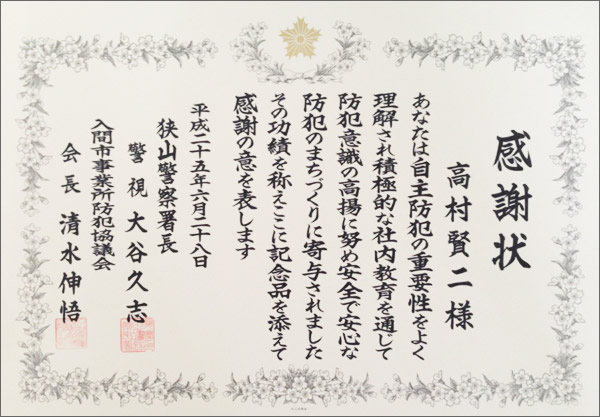 感謝状
高村賢二様
あなたは自主防犯の重要性をよく
理解され積極的な社内教育を通じて
防犯意識の高揚に努め安全で安心な
防犯のまちづくりに寄与されました
その功績を称えここに記念品を添えて
感謝の意を表します
平成二十五年六月二十八日
狭山警察署長
警視 大谷久志
入間市事業所防犯協議会
会長 清水伸悟